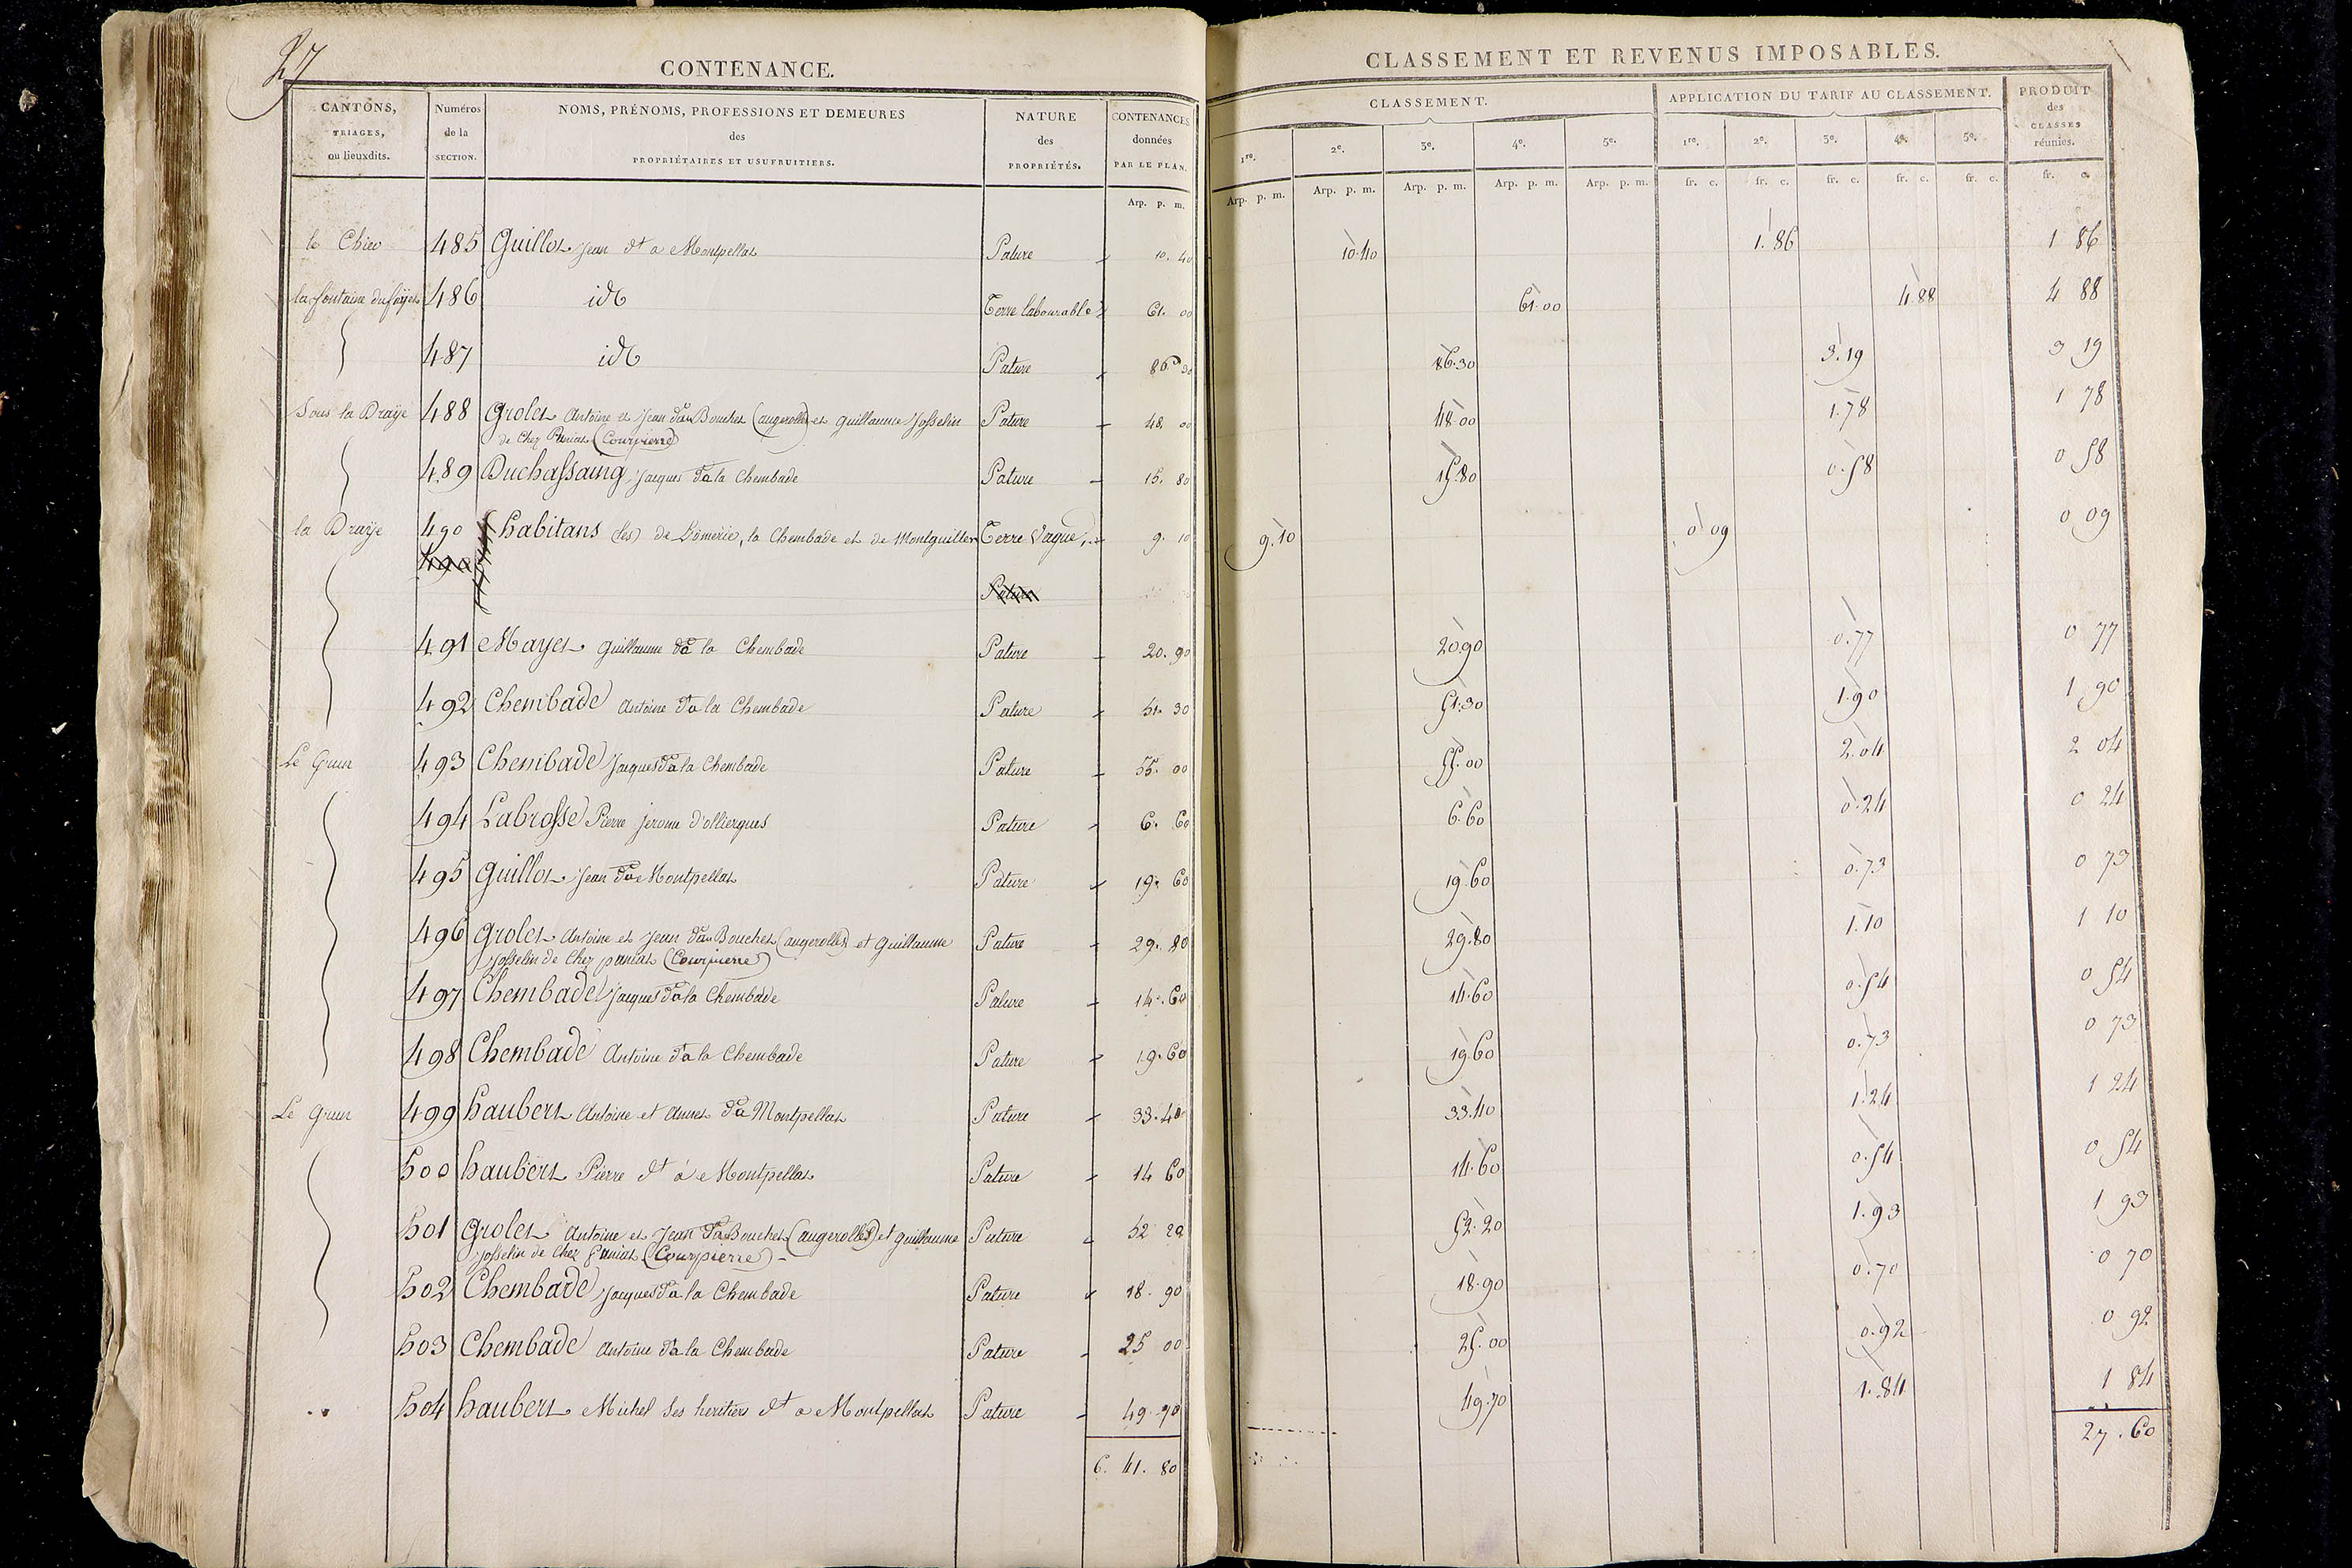 27
CONTENANCE.
CANTONS, TRIAGES, ou lieuxdits.
Numéros de la SECTION.
NOMS, PRÉNOMS, PROFESSIONS ET DEMEURES des PROPRIÉTAIRES ET USUFRUITIERS.
NATURE des PROPRIÉTÉS.
CONTENANCES données PAR LE PLAN.
Arp. p. m.
CLASSEMENT ET REVENUS IMPOSABLES.
CLASSEMENT.
APPLICATION DU TARIF AU CLASSEMENT.
PRODUIT des CLASSES réunies.
1re. 2e. 3e. 4e. 5e. 1re. 2e. 3e. 4e. 5e.
Arp. p. m. Arp. p. m. Arp. p. m. Arp. p. m. Arp. p. m. fr. c. fr. c. fr. c. fr. c. fr. c. fr. c.
le 485 Guillot Jean dt a Montpellat Pature 10. 40 10.40 1.86 1 86
la fontaine du 486 id Terre labourable 61. 00 61.00 4.88 4 88
487 id Pature 86 30 86.30 3.19 3 19
Sous la Draÿe 488 Grolet Antoine et Jean d'au Bouchet (augerolles) et Guillaume Josselin Pature 48 00 48.00 1.78 1 78
de Chez (Courpierre)
489 Duchassaing Jacques d'a la Chembade Pature 15. 80 15.80 0.58 0 58
la Draÿe 490 habitans (les) de L'imerie, la Chembade et de Montguillem Terre Vague 9. 10 9.10 0 09 0 09
490
Pature
491 Mayet Guillaume d'a la Chembade Pature 20. 90 20.90 0.77 0 77
492 Chembade Antoine d'a la Chembade Pature 51. 30 51.30 1.90 1 90
Le Grun 493 Chembade Jacques d'a la Chembade Pature 55. 00 55.00 2.04 2 04
494 Labrosse Pierre Jerome d'olliergues Pature 6. 60 6.60 0.24 0 24
495 Guillot Jean d'a Montpellat Pature 19. 60 19.60 0.73 0 73
496 Grolet Antoine et Jean d'au Bouchet (augerolles) et Guillaume Pature 29. 80 29.80 1.10 1 10
Josselin de Chez (Courpierre)
497 Chembade Jacques d'a la Chembade Pature 14. 60 14.60 0.54 0 54
498 Chembade Antoine d'a la Chembade Pature 19. 60 19.60 0.73 0 73
Le Grun 499 haubert Antoine et Annet d'a Montpellat Pature 33. 40 33.40 1.24 1 24
500 haubert Pierre dt á Montpellat Pature 14 60 14.60 0.54 0 54
501 Grolet Antoine et Jean d'au Bouchet (augerolles) et guillaume Pature 52 20 52.20 1.93 1 93
Josselin de Chez (Courpierre)
502 Chembade Jacques d'a la Chembade Pature 18. 90 18.90 0.70 0 70
503 Chembade Antoine d'a la Chembade Pature 25 00 25.00 0.92 0 92
504 haubert Michel ses heritiers dt a Montpellat Pature 49. 70 49.70 1.84 1 84
6. 41. 80 27. 60